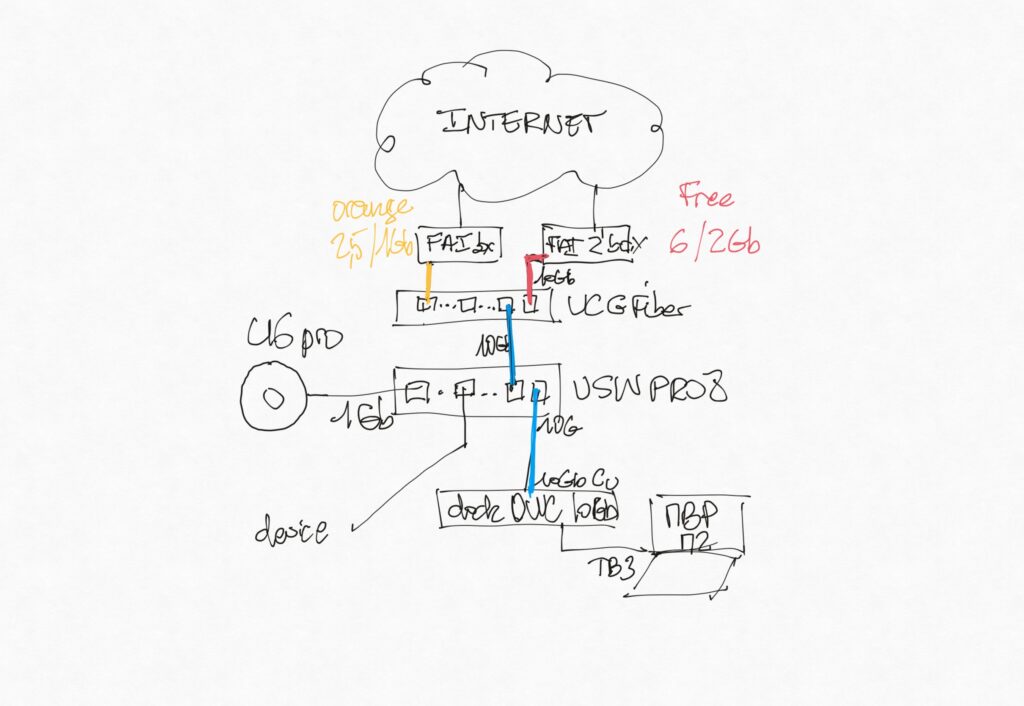 INTERNET
orange
2,5/1Gb
Free
6/2Gb
FAI bx
FAI 2 box
10Gb
UCG Fiber
U6 pro
10Gb
1Gb
USW PRO 8
10G
10Gb Cu
device
dock OWC 10Gb
TB3
MBP
M2